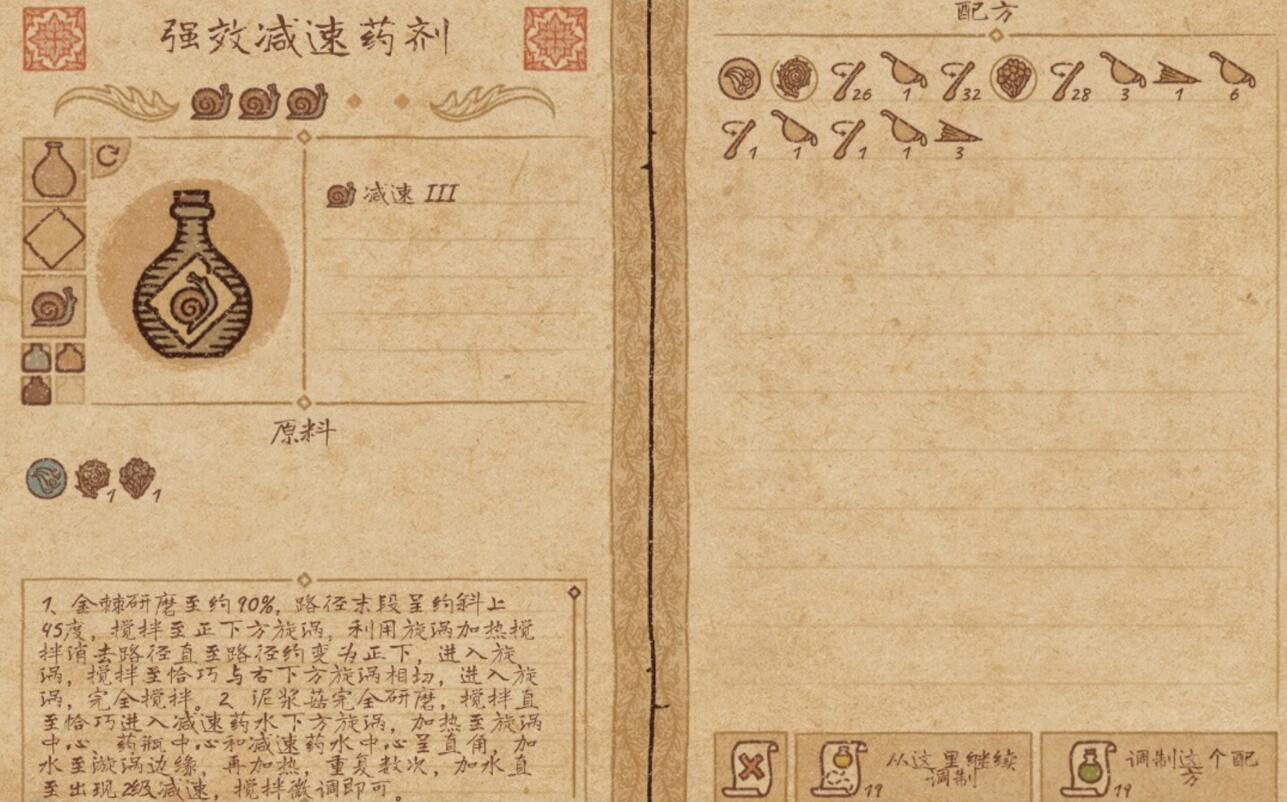 强效减速药剂
减速 III
原料
1 1
1、金棘研磨至约90%，路径末段呈约斜上
45度，搅拌至正下方旋涡，利用旋涡加热搅
拌消去路径直至路径约变为正下，进入旋
涡，搅拌至恰巧与右下方旋涡相切，进入旋
涡，完全搅拌。2、泥浆菇完全研磨，搅拌直
至恰巧进入减速药水下方旋涡，加热至旋涡
中心、药瓶中心和减速药水中心呈直角，加
水至漩涡边缘，再加热，重复数次，加水直
至出现2级减速，搅拌微调即可。
配方
26 1 32 28 3 1 6
1 1 1 1 3
19 从这里继续
调制
19 调制这个配
方